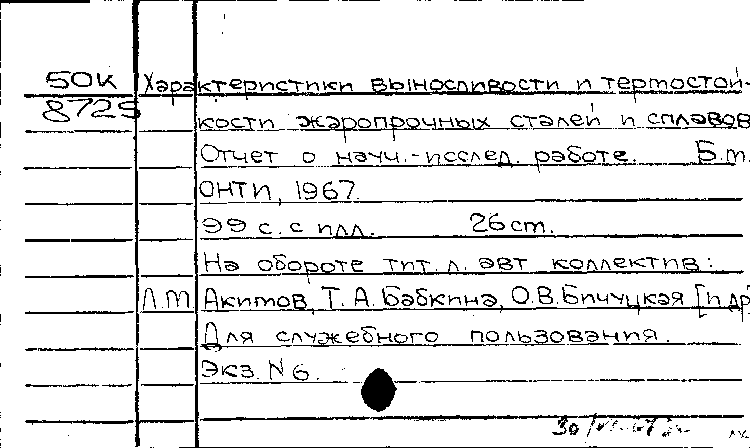 50К Характеристики выносливости и термостой-
8725 кости жаропрочных сталей и сплавов
Отчет о науч.-исслед. работе. Б.м.
ОНТИ, 1967.
99 с. с илл. 26 см.
На обороте тит. л. авт коллектив:
Л.М Акимов, Т.А.Бабкина, О.В.Бичуцкая [и др]
Для служебного пользования.
Экз. N 6.